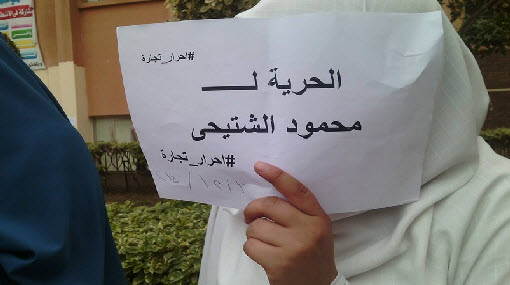 #احرار_تجارة
الحرية لـــ
محمود الشتيحى
#احرار_تجارة